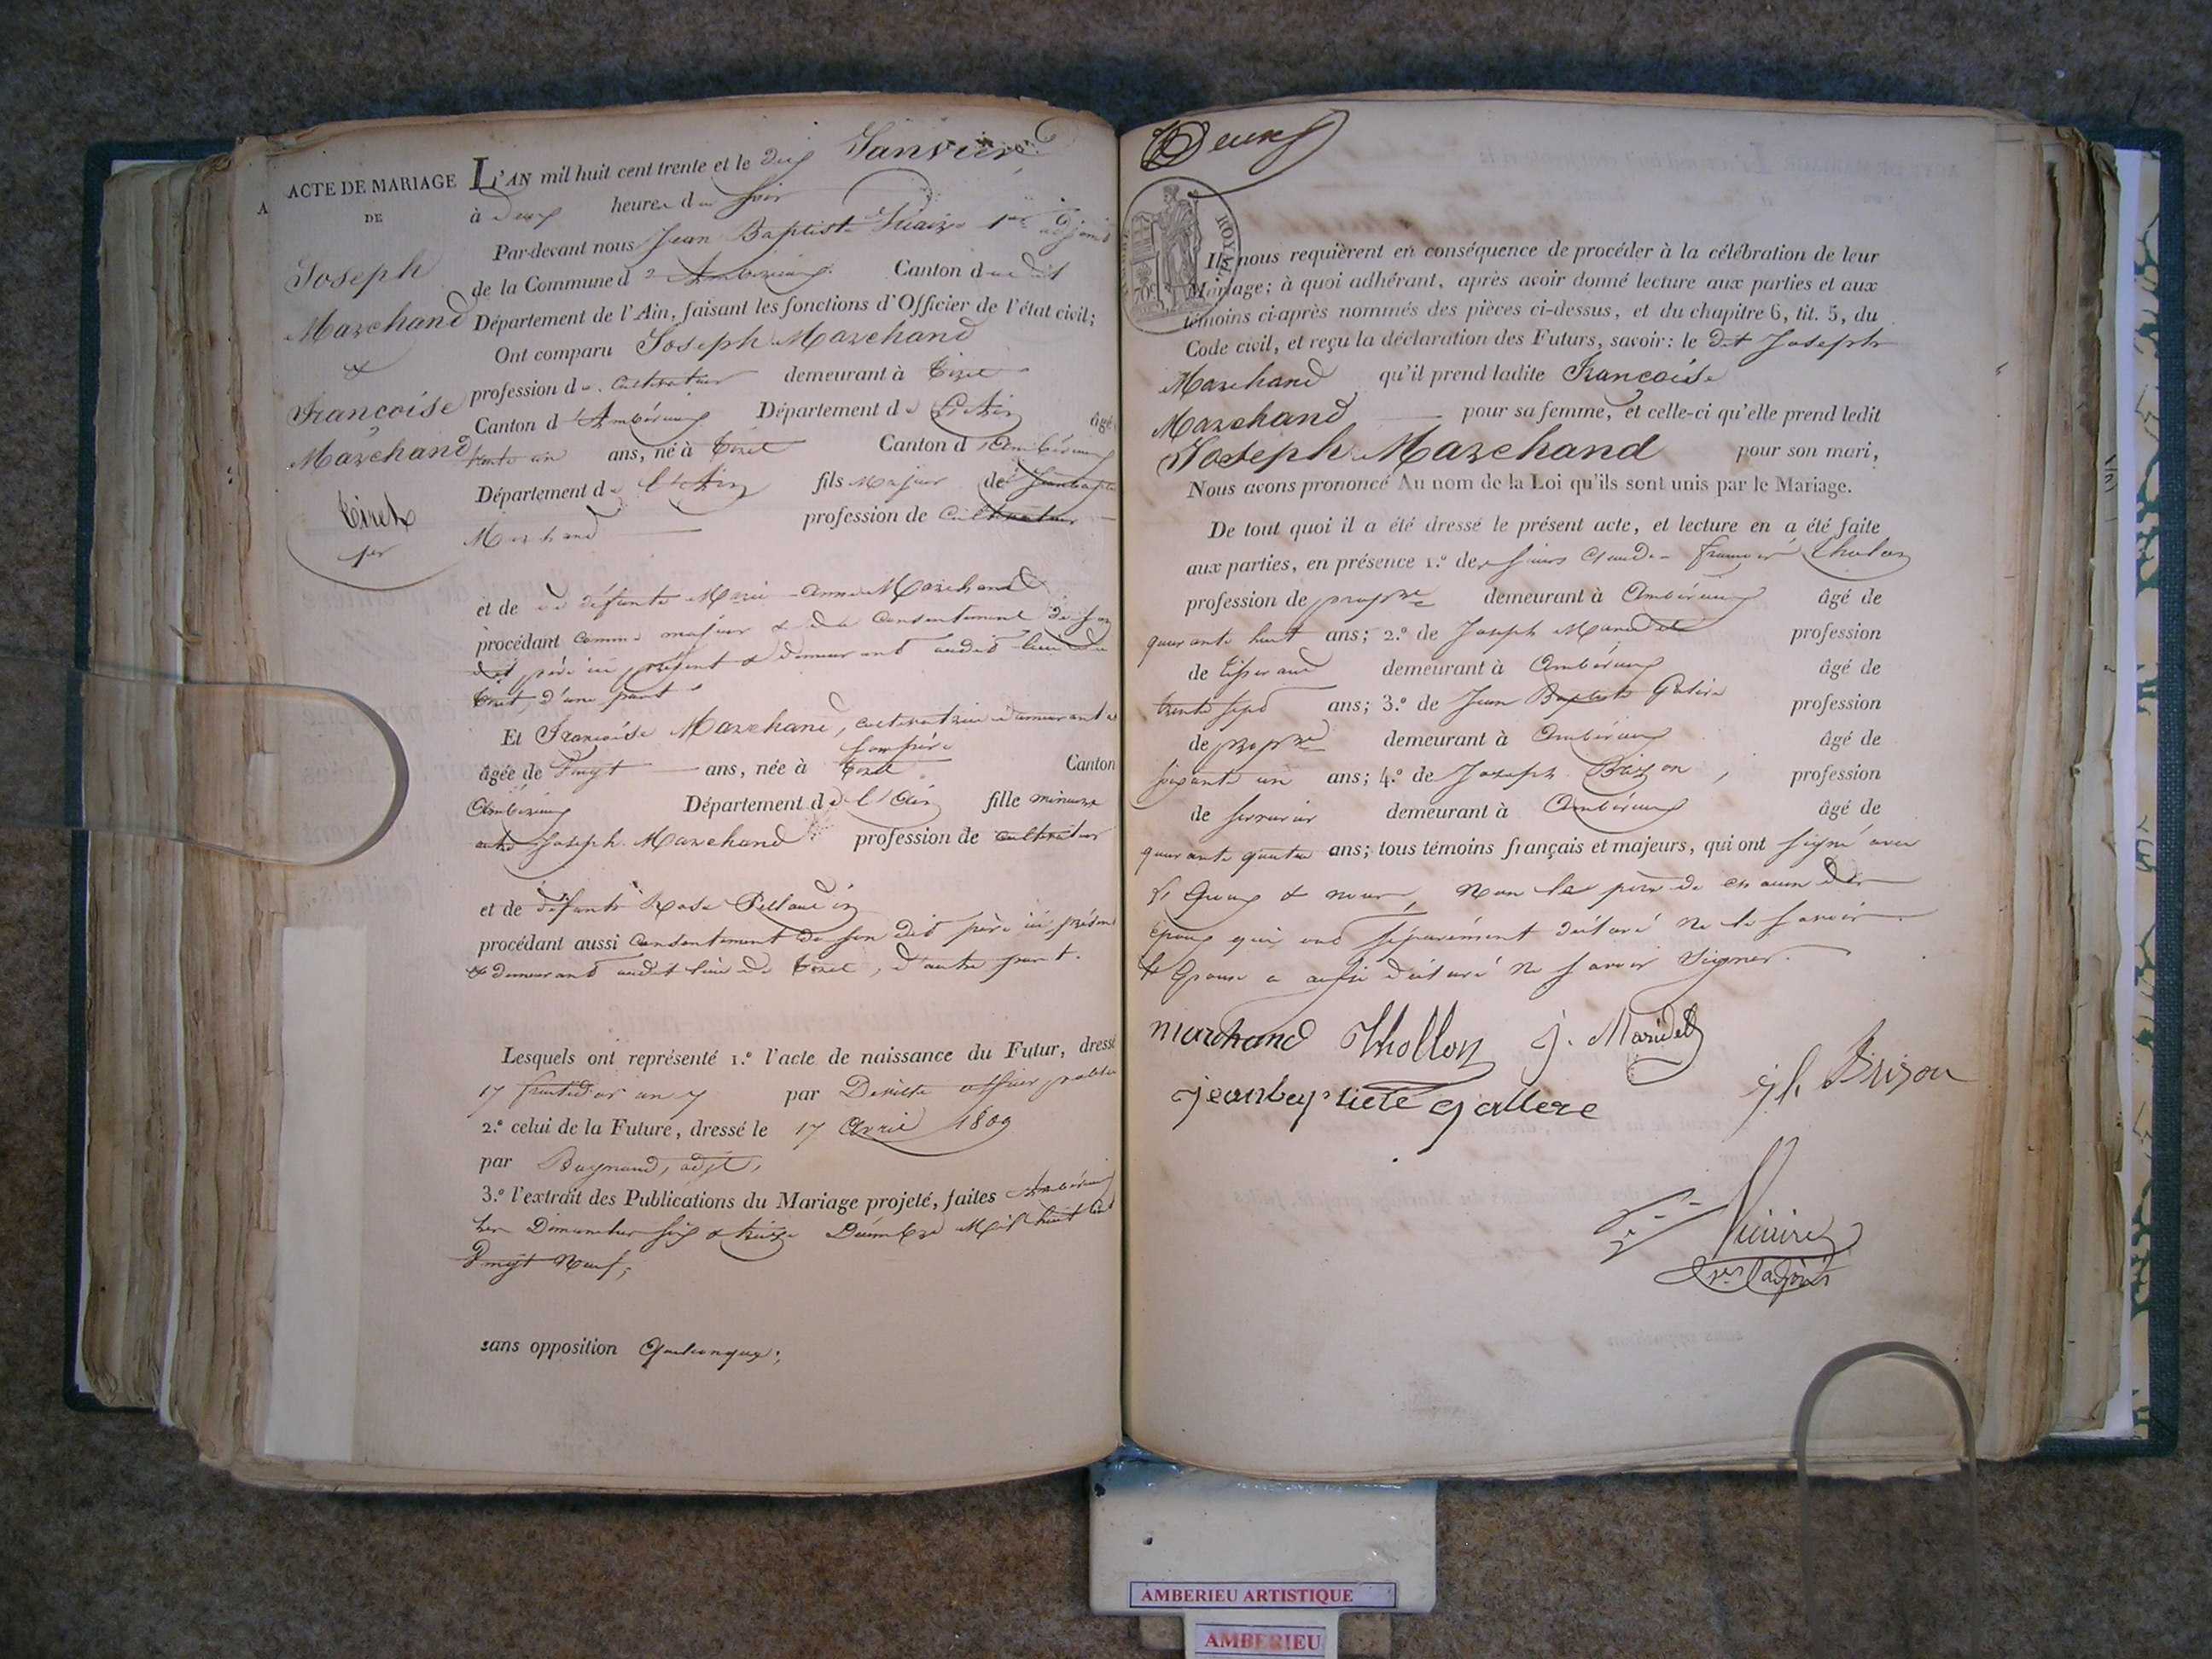 ACTE DE MARIAGE
DE
Joseph
Marchand
&
Françoise
Marchand
Tiret
1er
A
L'AN mil huit cent trente et le dix Janvier
à deux heures du soir
Par-devant nous Jean Baptiste 1er adjoint
de la Commune d'Ambérieux Canton dudit
Département de l'Ain, faisant les fonctions d'Officier de l'état civil;
Ont comparu Joseph Marchand
profession de Cultivateur demeurant à Tiret
Canton d'Ambérieux Département de L'Ain âgé
trente un ans, né à Tiret Canton d'Ambérieux
Département de l'Ain fils majeur de Jeanbaptiste
Marchand profession de Cultivateur
et de défunte Marie-anne Marchand
procédant comme majeur & du consentement de son
dit père ici présent & demeurant audit lieu de
Tiret, d'une part
Et Françoise Marchand, cultivatrice demeurant à
âgée de Vingt ans, née à Tiret Canton
Ambérieux Département de l'Ain fille mineure
autre Joseph Marchand profession de cultivateur
et de défunte Rose Pellaudin
procédant aussi Consentement de son dit père ici présent
& demeurant audit lieu de Tiret, d'autre part.
Lesquels ont représenté 1.º l'acte de naissance du Futur, dressé
17 fructidor an 7 par officier public
2.º celui de la Future, dressé le 17 Avril 1809
par adjt,
3.º l'extrait des Publications du Mariage projeté, faites Ambérieux
les Dimanches six & treize Décembre Mil huit cent
Vingt Neuf;
sans opposition Quelconque;
Deux
ROYAL
70c
Ils nous requièrent en conséquence de procéder à la célébration de leur
Mariage; à quoi adhérant, après avoir donné lecture aux parties et aux
témoins ci-après nommés des pièces ci-dessus, et du chapitre 6, tit. 5, du
Code civil, et reçu la déclaration des Futurs, savoir: le dit Joseph
Marchand qu'il prend ladite Françoise
Marchand pour sa femme, et celle-ci qu'elle prend ledit
Joseph Marchand pour son mari,
Nous avons prononcé Au nom de la Loi qu'ils sont unis par le Mariage.
De tout quoi il a été dressé le présent acte, et lecture en a été faite
aux parties, en présence 1.º des sieurs Claude-François Tholon
profession de propre demeurant à Ambérieux âgé de
quarante huit ans; 2.º de Joseph Maridet profession
de tisserand demeurant à Ambérieux âgé de
trente sept ans; 3.º de Jean Baptiste profession
de propre demeurant à Ambérieux âgé de
soixante un ans; 4.º de Joseph Brizon, profession
de serrurier demeurant à Ambérieux âgé de
quarante quatre ans; tous témoins français et majeurs, qui ont signé avec
l'Epoux & nous, Non les père de chacun des
époux qui ont séparément déclaré ne le savoir
l'Epouse a aussi déclaré ne savoir Signer.
marchand Thollon J. Maridet
jeanbaptiste gallere jh Brizon